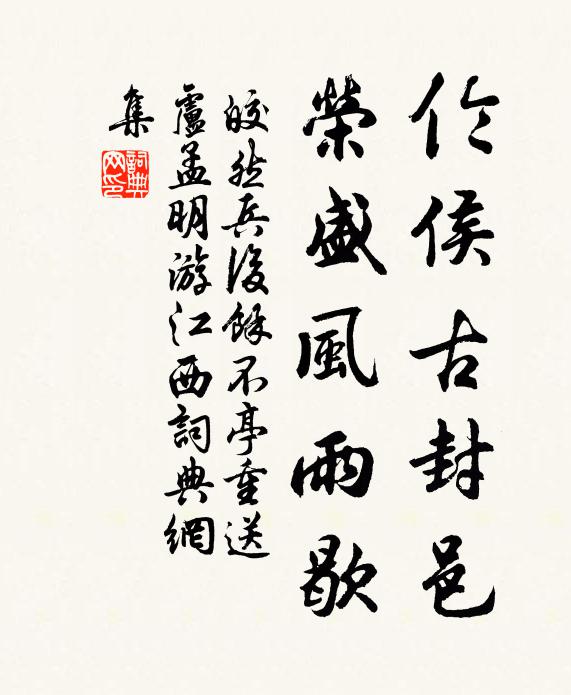 伶侯古封邑
榮盛風雨歇
皎然兵後餘不亭重送
盧孟明游江西詞典網
集
詞典
网印